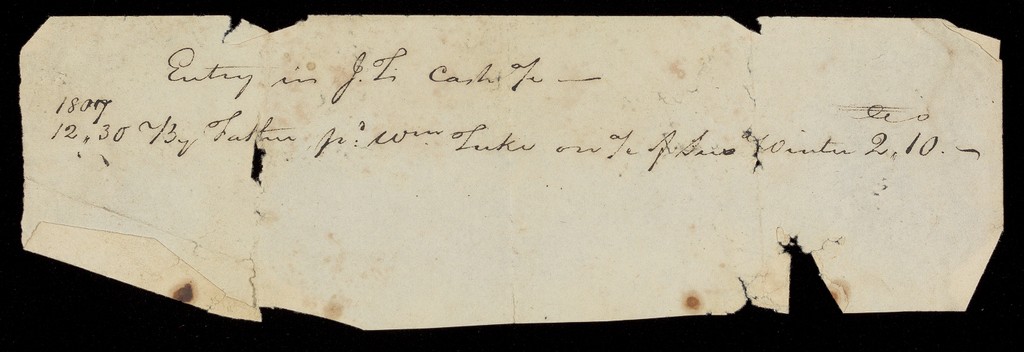 Entry in J. T.s Cash a/c —
1807
12.30 By Father pr. Wm Tuke on a/c Geo Winter 2.10. —